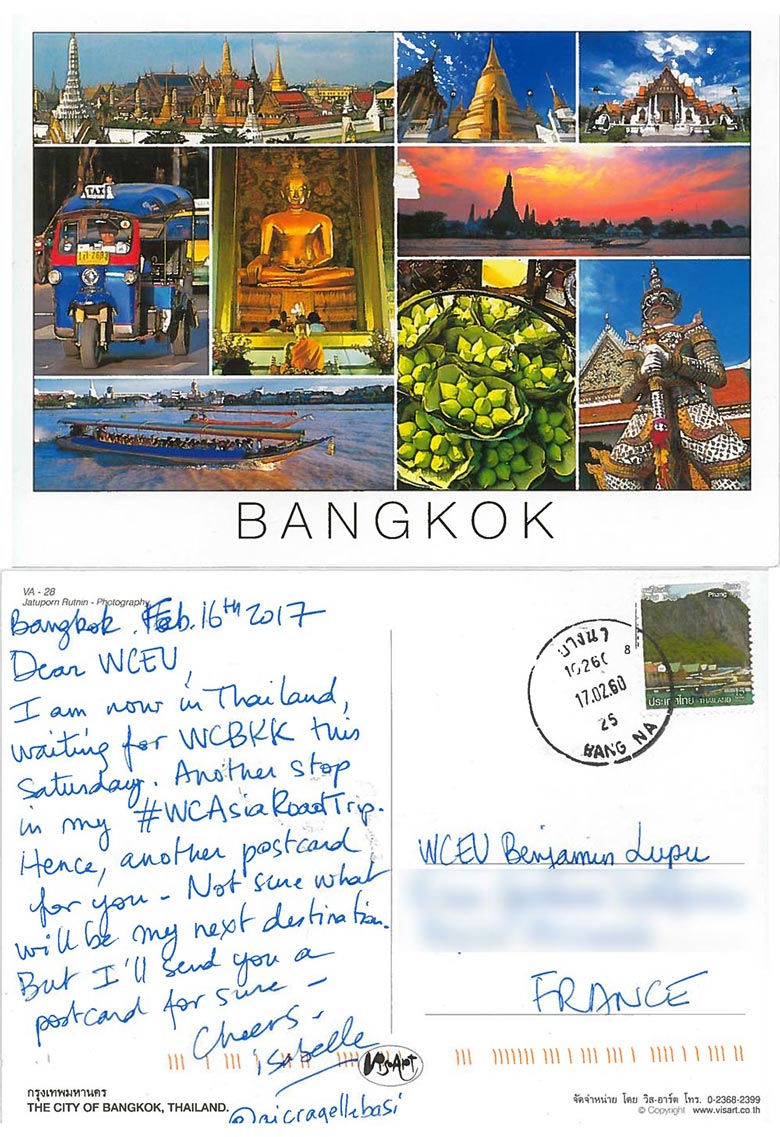 TAXI
BANGKOK
VA - 28
Jatuporn Rutnin - Photography
Bangkok, Feb. 16th 2017
Dear WCEU,
I am now in Thailand,
waiting for WCBKK this
Saturday. Another stop
in my #WCAsiaRoadTrip.
Hence, another postcard
for you - Not sure what
will be my next destination.
But I'll send you a
postcard for sure -
Cheers.
isabelle
@aicragellebasi
Phang
ประเทศไทย THAILAND 15
บางนา
10260
8
17.02.60
25
BANG NA
WCEU Benjamin Lupu
FRANCE
VisArt
กรุงเทพมหานคร
THE CITY OF BANGKOK, THAILAND.
จัดจำหน่าย โดย วิส-อาร์ต โทร. 0-2368-2399
© Copyright www.visart.co.th